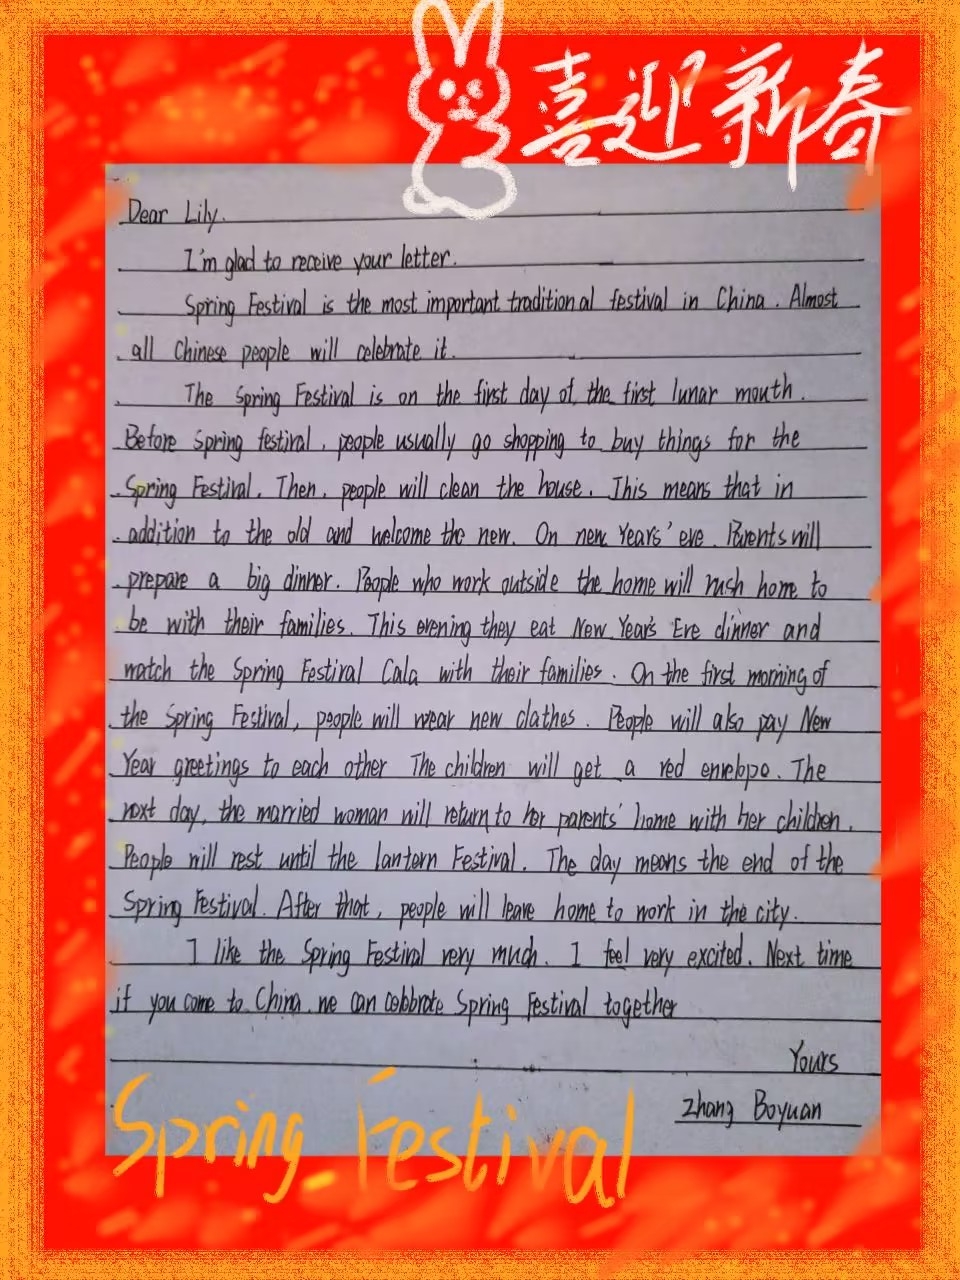 喜迎新春
Dear Lily.
I'm glad to receive your letter.
Spring Festival is the most important traditional festival in China. Almost
all Chinese people will celebrate it.
The Spring Festival is on the first day of the first lunar mouth.
Before Spring festival, people usually go shopping to buy things for the
Spring Festival. Then, people will clean the house. This means that in
addition to the old and welcome the new. On new Years' eve. Parents will
prepare a big dinner. People who work outside the home will rush home to
be with their families. This evening they eat New Year's Eve dinner and
watch the Spring Festival Cala with their families. On the first morning of
the Spring Festival, people will wear new clathes. People will also pay New
Year greetings to each other The children will get a red envelope. The
next day, the married woman will return to her parents' home with her children.
People will rest until the lantern Festival. The day means the end of the
Spring Festival. After that, people will leave home to work in the city.
I like the Spring Festival very much. I feel very excited. Next time
if you come to China. we can celebrate Spring Festival together
Yours
Zhang Boyuan
Spring Festival